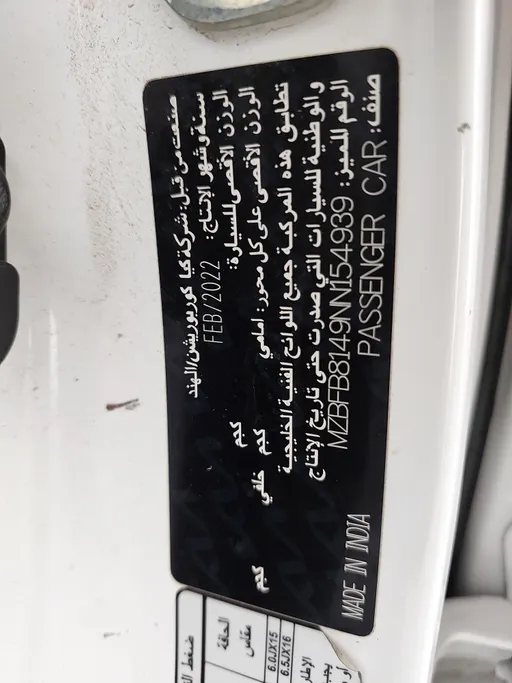 صنعت من قبل: شركة كيا كوربوريشن/الهند
سنة و شهر الإنتاج: FEB/2022
الوزن الأقصى للسيارة: كجم
الوزن الأقصى على كل محور: امامي كجم خلفي كجم
تطابق هذه المركبة جميع اللوائح الفنية الخليجية
و الوطنية للسيارات التي صدرت حتى تاريخ الإنتاج
الرقم المميز: MZBFB8149NN154939
صنف: PASSENGER CAR MADE IN INDIA
ضغط
مقاس الحافة
6.0JX15
6.5JX16